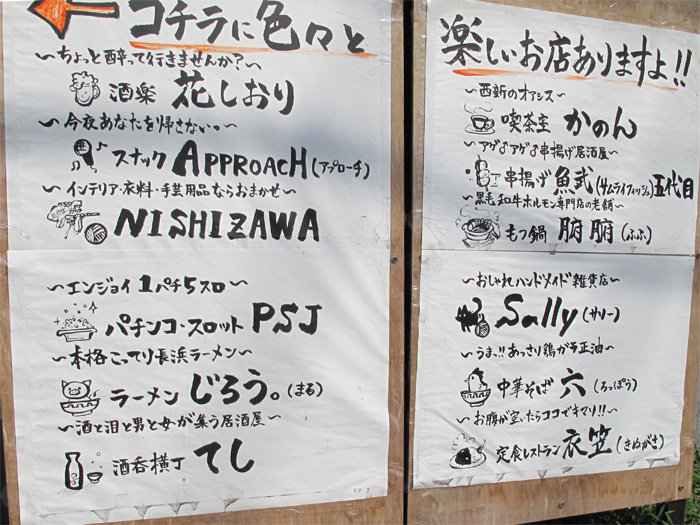 コチラに色々と
〜ちょっと酔って行きませんか?〜
酒楽 花しおり
〜今夜あなたを帰さない。〜
スナック APPROACH (アプローチ)
〜インテリア・衣料・手芸用品ならおまかせ〜
NISHIZAWA
〜エンジョイ1パチ5スロ〜
パチンコ・スロット PSJ
〜本格こってり長浜ラーメン〜
ラーメン じろう。(まる)
〜酒と泪と男と女が集う居酒屋〜
酒呑横丁 てし
楽しいお店ありますよ!!
〜西新のオアシス〜
喫茶室 かのん
アゲ♂アゲ♂串揚げ居酒屋〜
串揚げ 魚武 (サムライフィッシュ) 五代目
〜黒毛和牛ホルモン専門店の老舗〜
もつ鍋 腑腑 (ふふ)
〜おしゃれハンドメイド雑貨店〜
Sally (サリー)
〜うまっ!!あっさり鶏ガラ正油〜
中華そば 六 (ろっぽう)
〜お腹が空いたらココでキマリ!!〜
定食レストラン 衣笠 (きぬがさ)